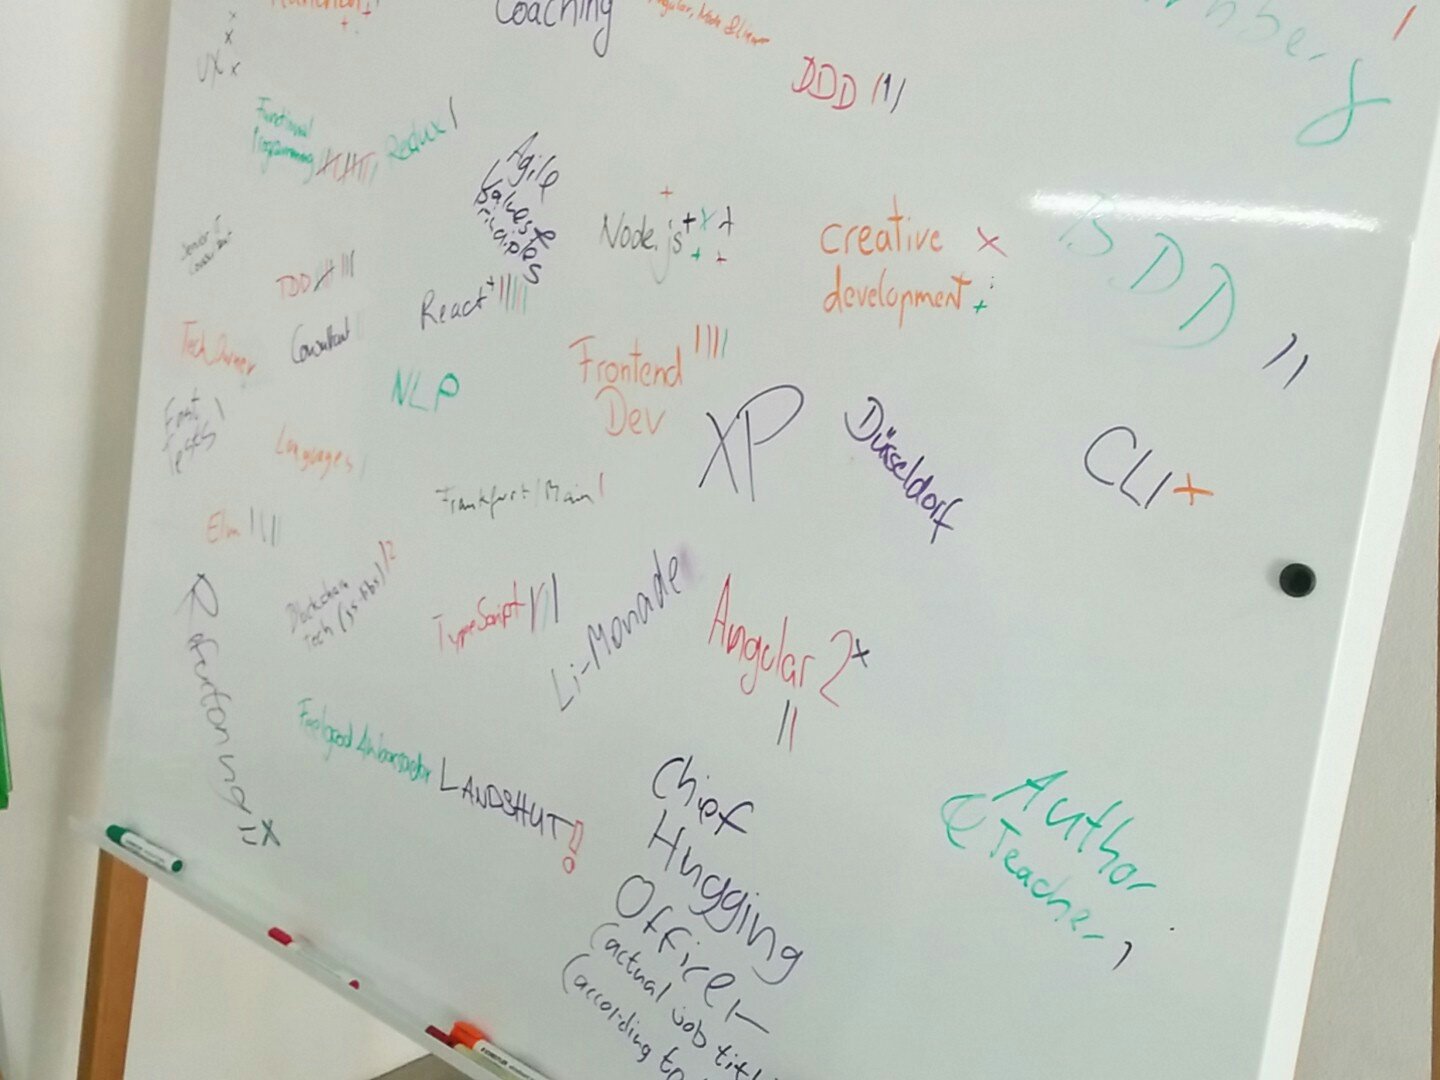 Coaching
UX
DDD
Functional
Programming
Redux
Agile
Values &
Principles
Node.js
creative
development
BDD
TDD
React
Tech Owner
Consultant
NLP
Frontend
Dev
XP
Düsseldorf
CLI
Fast
Tests
Languages
Frankfurt/Main
Elm
Blockchain
Tech (js-libs)
TypeScript
Li-Monade
Angular 2
Feelgood Ambassador
LANDSHUT!
Chief
Hugging
Officer
(actual job title
(according to
Author
& Teacher